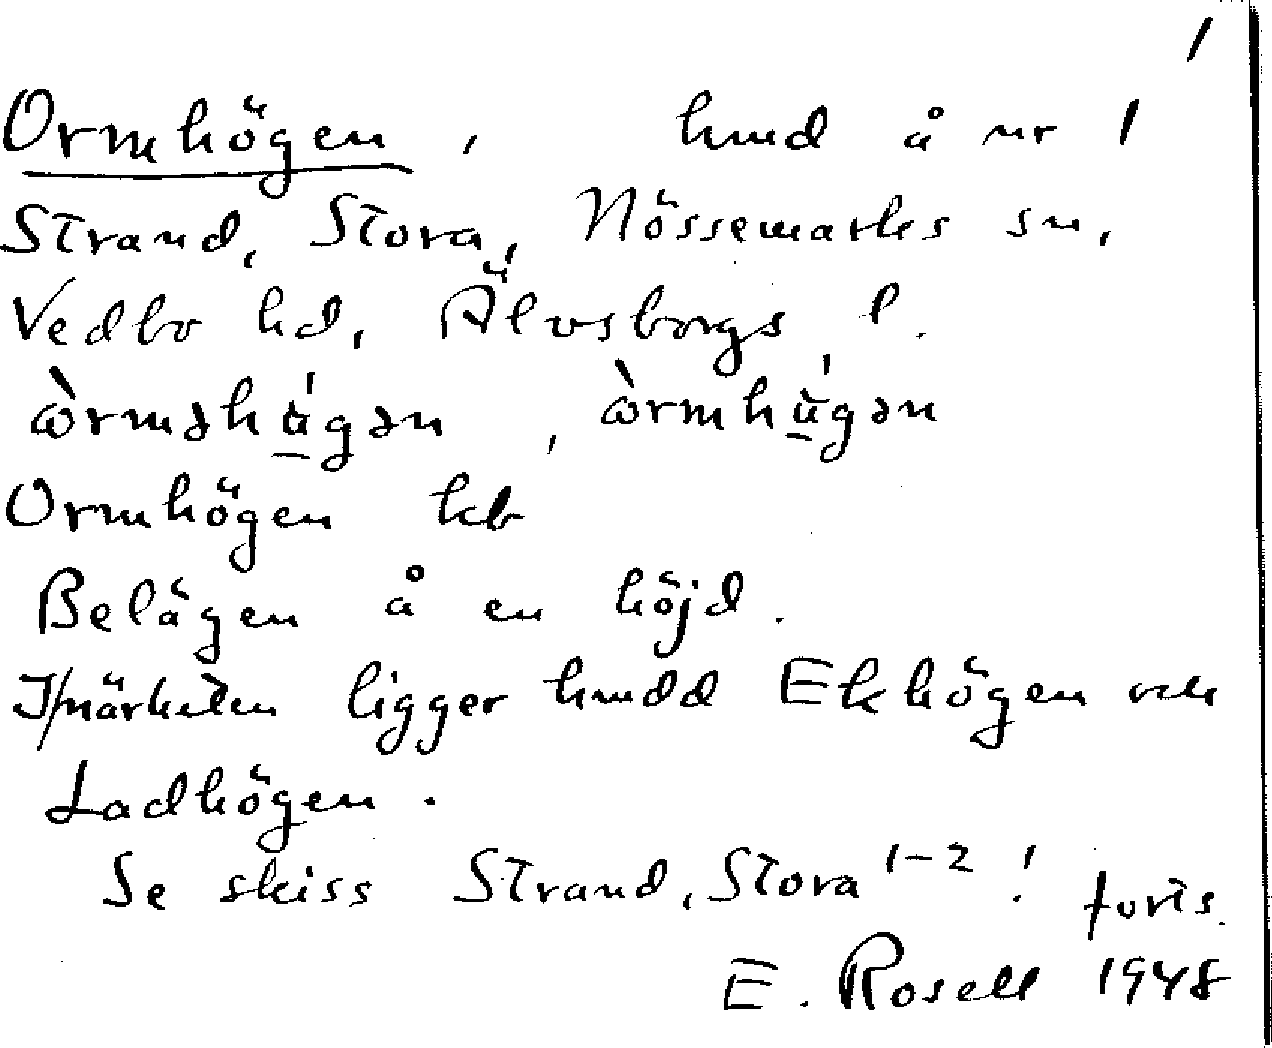 1
Ormhögen, hmd å nr 1
Strand, Stora, Nössemarks sn,
Vedbo hd, Älvsborgs l.
ɷ̀rməhø̀gən, ɷ̀rmhø̀gən
Ormhögen kb
Belägen å en höjd.
I närheten ligger hmdd Ekhögen och
Ladhögen.
Se skiss Strand, Stora 1-2! forts.
E. Rosell 1948